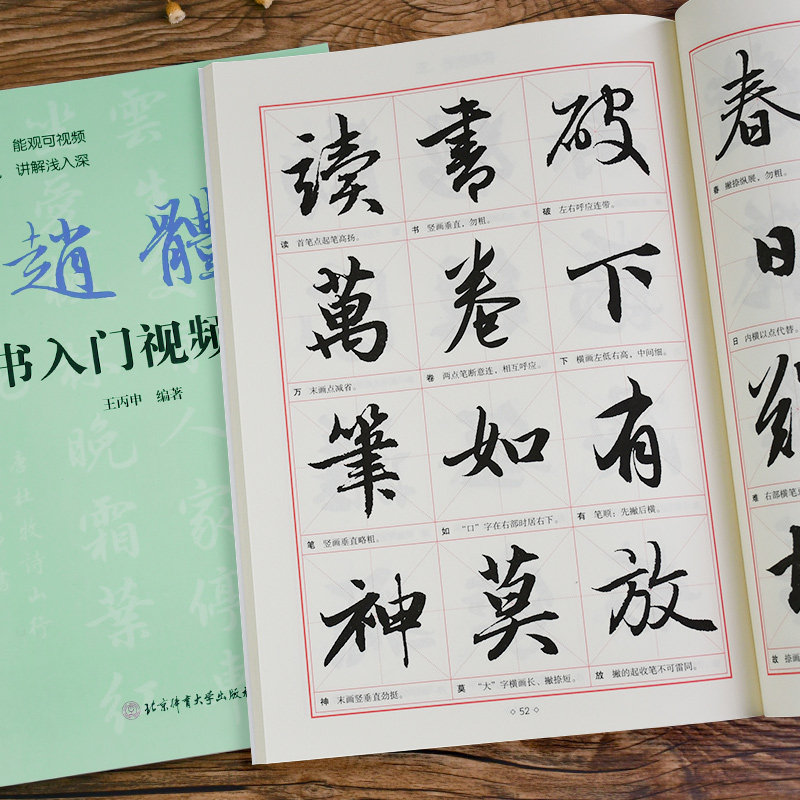 能观可视频
讲解浅入深
趙體
书入门视频
王丙申 编著
北京体育大学出版社
讀 書 破
读 首笔点起笔高扬。 书 竖画垂直,勿粗。 破 左右呼应连带。
萬 卷 下
万 末画点减省。 卷 两点笔断意连,相互呼应。 下 横画左低右高,中间细。
筆 如 有
笔 竖画垂直略粗。 如 “口”字在右部时居右下。 有 笔顺:先撇后横。
神 莫 放
神 末画竖垂直劲挺。 莫 “大”字横画长、撇捺短。 放 撇的起收笔不可雷同。
52
春
春 撇捺纵展,勿粗。
日
日 内横以点代替。
难 右部横笔
故 捺画